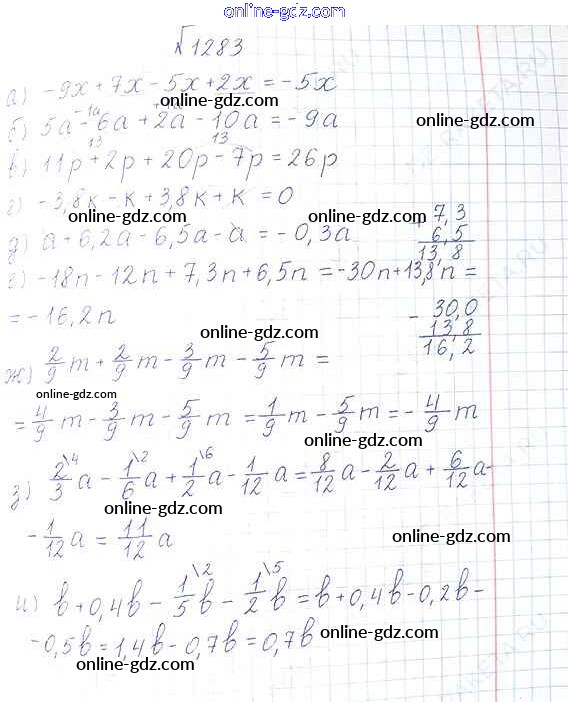 www.online-gdz.com
√1283
а) -9x + 7x - 5x + 2x = -5x
online-gdz.com online-gdz.com
-1a
б) 5a - 6a + 2a - 10a = -9a
online-gdz.com
13 13
в) 11p + 2p + 20p - 7p = 26p
г) -3,8к - к + 3,8к + к = 0
online-gdz.com online-gdz.com
7,3
д) a + 6,2a - 6,5a - a = -0,3a
6,5
13,8
е) -18n - 12n + 7,3n + 6,5n = -30n + 13,8n =
= -16,2n
- 30,0
13,8
16,2
online-gdz.com
ж) 2/9 m + 2/9 m - 3/9 m - 5/9 m =
online-gdz.com online-gdz.com
= 4/9 m - 3/9 m - 5/9 m = 1/9 m - 5/9 m = - 4/9 m
\4 \2 \6
з) 2/3 a - 1/6 a + 1/2 a - 1/12 a = 8/12 a - 2/12 a + 6/12 a -
online-gdz.com
- 1/12 a = 11/12 a
online-gdz.com
\2 \5
и) b + 0,4b - 1/5 b - 1/2 b = b + 0,4b - 0,2b -
- 0,5b = 1,4b - 0,7b = 0,7b
online-gdz.com
online-gdz.com